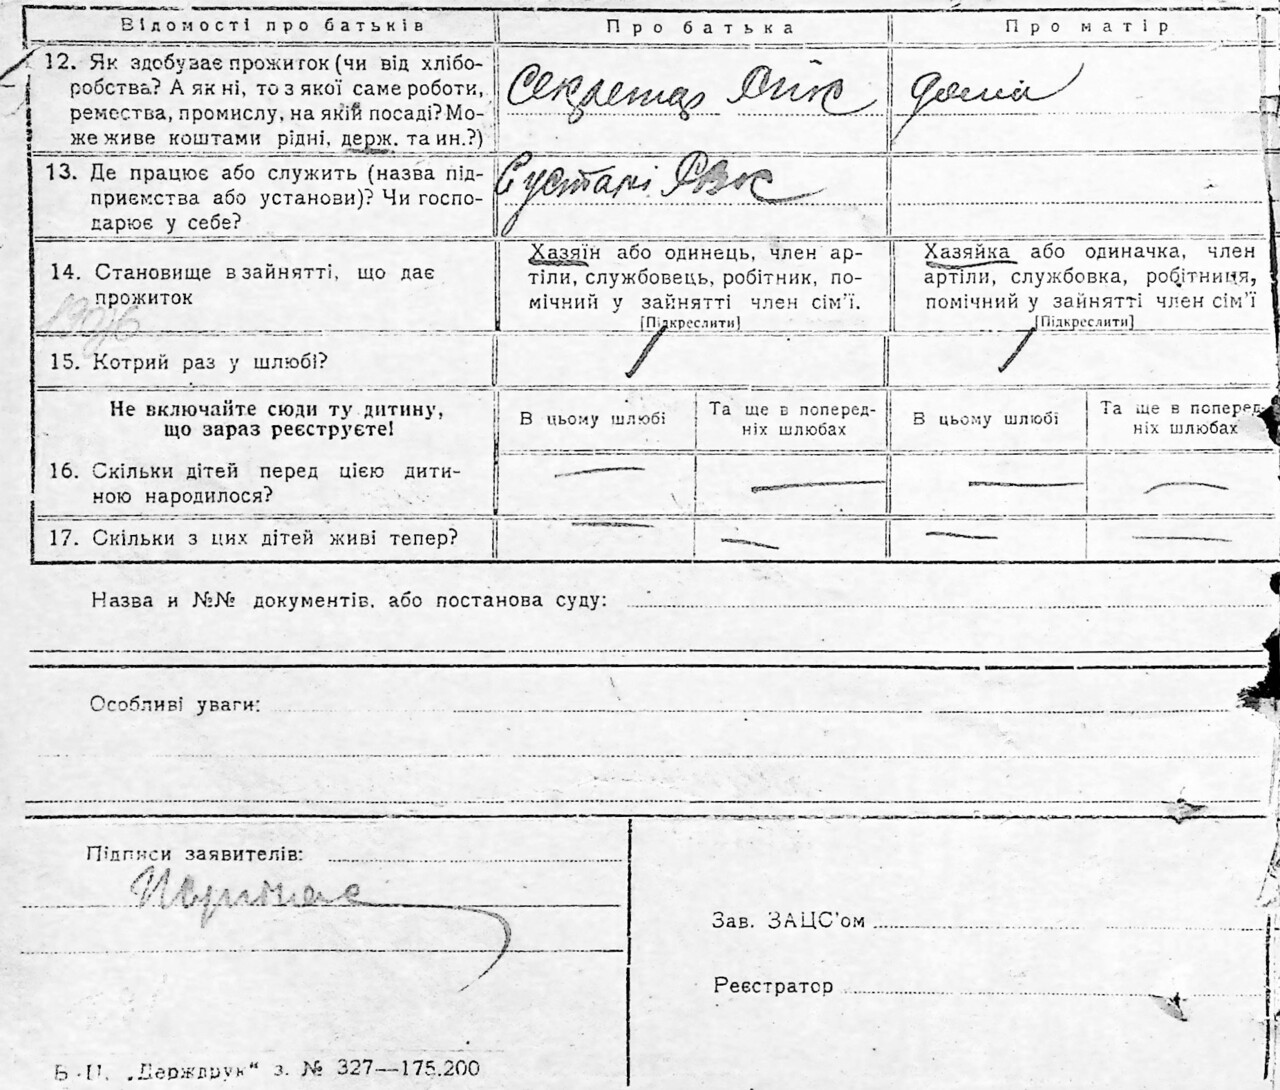 Відомості про батьків Про батька Про матір
12. Як здобуває прожиток (чи від хлібо-
робства? А як ні, то з якої саме роботи,
ремества, промислу, на якій посаді? Мо-
же живе коштами рідні, держ. та ин.?)
Секретар дома
13. Де працює або служить (назва під-
приємства або установи)? Чи госпо-
дарює у себе?
РВК
14. Становище в зайнятті, що дає
прожиток
Хазяїн або одинець, член ар-
тіли, службовець, робітник, по-
мічний у зайнятті член сім'ї.
[Підкреслити]
Хазяйка або одиначка, член
артіли, службовка, робітниця,
помічний у зайнятті член сім'ї
[Підкреслити]
15. Котрий раз у шлюбі?
Не включайте сюди ту дитину,
що зараз реєструєте!
В цьому шлюбі
Та ще в поперед-
ніх шлюбах
В цьому шлюбі
Та ще в поперед-
ніх шлюбах
16. Скільки дітей перед цією дити-
ною народилося?
17. Скільки з цих дітей живі тепер?
Назва и №№ документів, або постанова суду:
Особливі уваги:
Підписи заявителів:
Зав. ЗАЦС'ом
Реєстратор
„Держдрук“ з. № 327—175.200